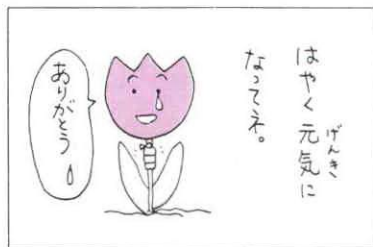 はやく元気に
げんき
なってネ。
ありがとう